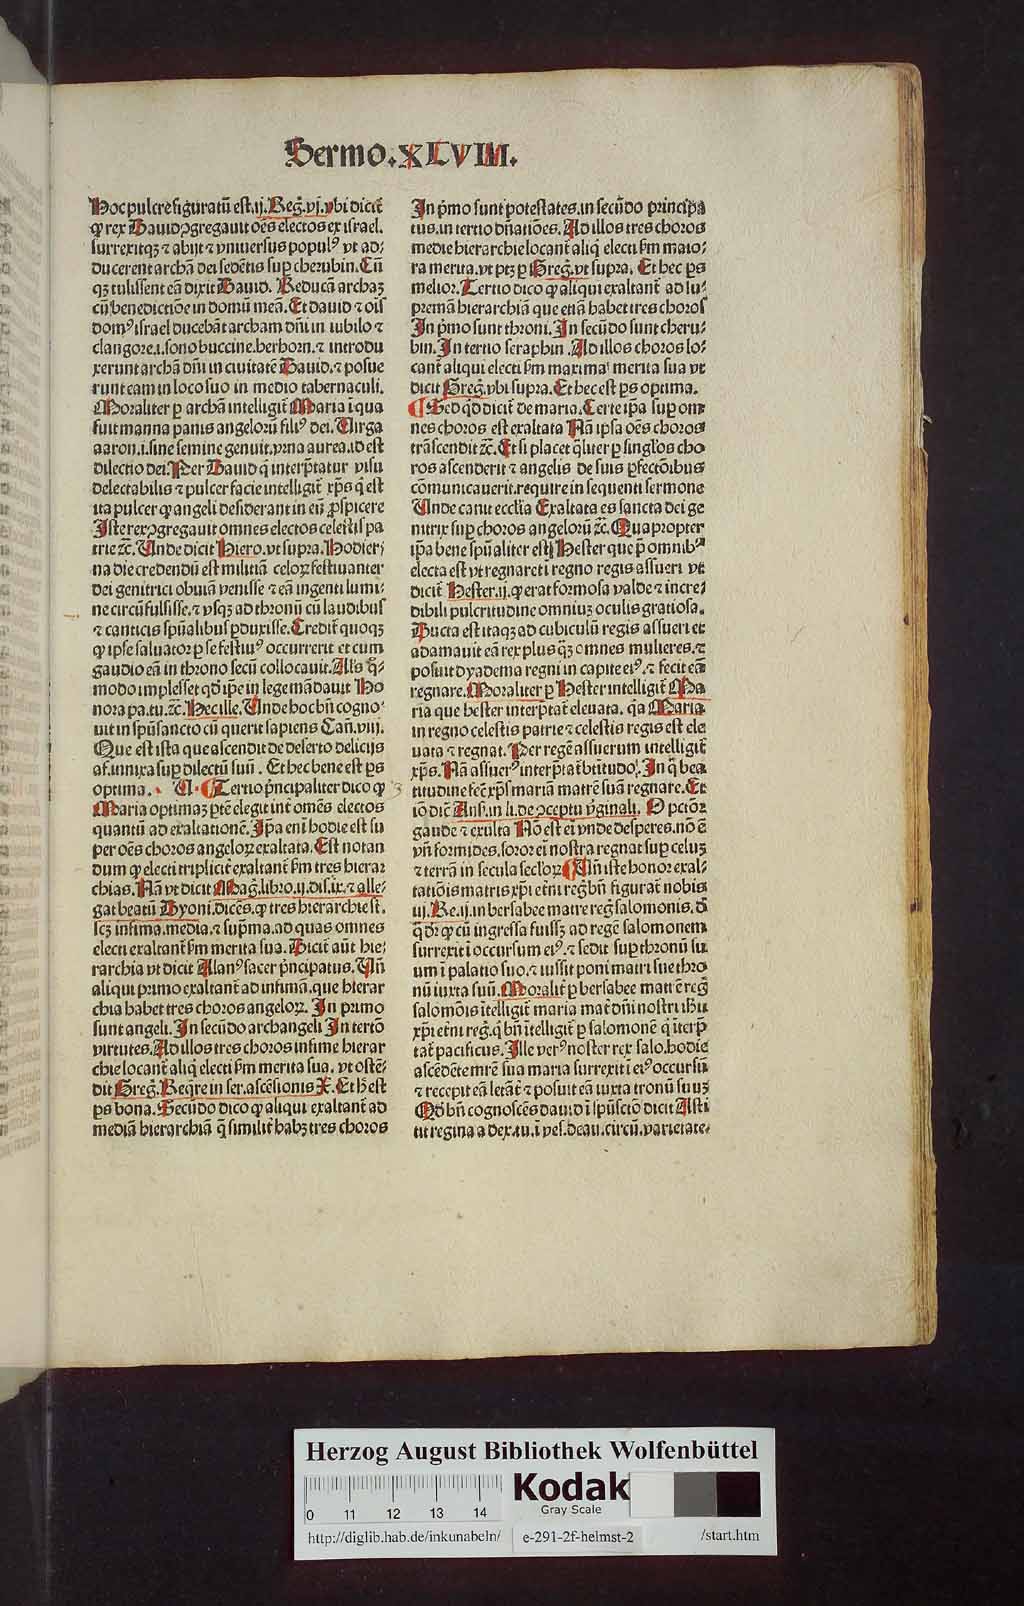 Sermo.XLVIII.
Hoc pulcre figuratū est.ij.Reg̃.vj.vbi dicit̃
ꝙ rex Dauid ꝯgregauit oēs electos ex israel.
surrexitqꝫ ⁊ abijt ⁊ vniuersus populꝰ vt ad⸗
ducerent archā dei sedētis suꝑ cherubin. Cū
qꝫ tulissent eā dixit Dauid. Reducā archaꝫ
cū benedictiōe in domū meā. Et dauid ⁊ oīs
domꝰ israel ducebāt archam dn̄i in iubilo ⁊
clangore.i.sono buccine.herhorn.⁊ introdu
xerunt archā dn̄i in ciuitatē Dauid.⁊ posue
runt eam in loco suo in medio tabernaculi.
Moraliter ꝑ archā intelligit̃ Maria ī qua
fuit manna panis angelorū filiꝰ dei. Uirga
aaron.i.sine semine genuit.vrna aurea.id est
dilectio dei. Per Dauid q̄ interp̄tatur visu
delectabilis ⁊ pulcer facie intelligit̃ xp̄s q̄ est
ita pulcer ꝙ angeli desiderant in eū ꝓspicere
Iste rex ꝯgregauit omnes electos celestis pa
trie ⁊c̄. Unde dicit Hiero.vt supra. Hodier⸗
na die credendū est militiā celoꝝ festiuanter
dei genitrici obuiā venisse ⁊ eā ingenti lumi⸗
ne circū fulsisse.⁊ vsqꝫ ad thronū cū laudibus
⁊ canticis spūalibus ꝑduxisse. Credit̃ quoqꝫ
ꝙ ipse saluator ꝑ se festiuꝰ occurrerit et cum
gaudio eā in throno secū collocauit. Al's q̄⸗
modo implesset qd̄ ip̄e in lege mādauit Ho
nora pa.tu.⁊c̄. Hec ille. Unde hoc bn̄ cogno⸗
uit in spū sancto cū querit sapiens Cañ.viij.
Que est ista que ascendit de deserto delicijs
af.innixa suꝑ dilectū suū. Et hec bene est ꝑs
optima. Tertio p̄ncipaliter dico ꝙ
Maria optimaꝫ ꝑtē elegit int̃ omēs electos
quantū ad exaltationē. Ip̄a eni hodie est su
per oēs choros angeloꝝ exaltata. Est notan
dum ꝙ electi triplicit̃ exaltant̃ s̄m tres hierar
chias. Nā vt dicit Mag̃.libro.ij.dis.ix.⁊ alle⸗
gat beatū Dyoni.dicēs.ꝙ tres hierarchie st̄.
scꝫ infima.media.⁊ sup̄ma.ad quas omnes
electi exaltant̃ s̄m merita sua. Dicit̃ aūt hie⸗
rarchia vt dicit Alanꝰ sacer p̄ncipatus. Un̄
aliqui primo exaltant̃ ad infimā.que hierar
chia habet tres choros angeloꝝ. In primo
sunt angeli. In secūdo archangeli In tertō
virtutes. Ad illos tres choros infime hierar
chie locant̃ aliq̄ electi s̄m merita sua.vt ostē⸗
dit Greg̃. Reqr̄e in ser.ascēsionis X. Et h̄ est
ꝑs bona. Secūdo dico ꝙ aliqui exaltant̃ ad
mediā hierarchiā q̄ similit̃ habꝫ tres choros
In p̄mo sunt potestates.in secūdo principa
tus.in tertio dn̄atiōes. Ad illos tres choros
medie hierarchie locant̃ aliq̄ electi s̄m maio⸗
ra merita.vt ptꝫ ꝑ Greg̃.vt supra. Et hec ꝑs
melior. Tertio dico ꝙ aliqui exaltant̃ ad su⸗
premā hierarchiā que etiā habet tres choros
In p̄mo sunt throni. In secūdo sunt cheru⸗
bin. In tertio seraphin. Ad illos choros lo⸗
cant̃ aliqui electi s̄m maxima merita sua vt
dicit Greg̃.vbi supra. Et hec est ꝑs optima.
Sed qd̄ dicit̃ de maria. Certe ip̄a suꝑ om
nes choros est exaltata Nā ipsa oēs choros
trāscendit ⁊c̄. Et si placet qͣliter ꝑ singl'os cho
ros ascenderit ⁊ angelis de suis ꝑfectōibus
cōmunicauerit.require in sequenti sermone
Unde canit eccl'ia Exaltata es sancta dei ge
nitrix suꝑ choros angelorū ⁊c̄. Quapropter
ip̄a bene spūaliter est Hester que p̄ omnibꝰ
electa est vt regnaret ī regno regis assueri vt
dicit̃ Hester.ij.ꝙ erat formosa valde ⁊ incre⸗
dibili pulcritudine omniuꝫ oculis gratiosa.
Ducta est itaqꝫ ad cubiculū regis assueri et
adamauit eā rex plus q̄ꝫ omnes mulieres.⁊
posuit dyadema regni in capite eiꝰ.⁊ fecit eā
regnare. Moraliter ꝑ Hester intelligit̃ Ma
ria que hester interp̄tat̃ eleuata. qͣa Maria
in regno celestis patrie ⁊ celestis regis est ele
uata ⁊ regnat. Per regē assuerum intelligit̃
xp̄s. Nā assuerꝰ interp̄tat̃ btitudo. In q̄ bea
titudine fec̄ xp̄s mariā matrē suā regnare. Et
iō dic̄ Ans.in li.de ꝯceptu v̄ginali. O pctōr
gaude ⁊ exulta Nō est ei vnde desperes.nō ē
vn̄ formides.soror ei nostra regnat suꝑ celuꝫ
⁊ terrā in secula seclōꝝ Un̄ iste honor exal⸗
tatiōis matris xp̄i etn̄i reg̃ bn̄ figurat̃ nobis
iij.Re.ij.in bersabee matre reg̃ salomonis.d̄
q̄ d̄r ꝙ cū ingressa fuissꝫ ad regē salomonem
surrexit ī occursum eiꝰ.⁊ sedit suꝑ thronū su
um ī palatio suo.⁊ iussit poni matri sue thro
nū iuxta suū. Moralit̃ ꝑ bersabee matrē reg̃
salomōis ītelligit̃ maria mat̃ dn̄i nostri ih̄u
xp̄i etn̄i reg̃.q̄ bn̄ ītelligit̃ ꝑ salomonē q̄ īterp̄
tat̃ pacificus. Ille verꝰ noster rex salo.hodie
ascēdēte mr̄e sua maria surrexit ī eiꝰ occursū
⁊ recepit eā letāt̃ ⁊ posuit eā iuxta tronū suuꝫ
Qd̄ bn̄ cognoscēs dauid ī spūsctō dicit Asti
tit regina a dex.tu.ī ves.deau.circū.varietate.
Herzog August Bibliothek Wolfenbüttel
0 11 12 13 14
Kodak
Gray Scale
http://diglib.hab.de/inkunabeln/ e-291-2f-helmst-2 /start.htm